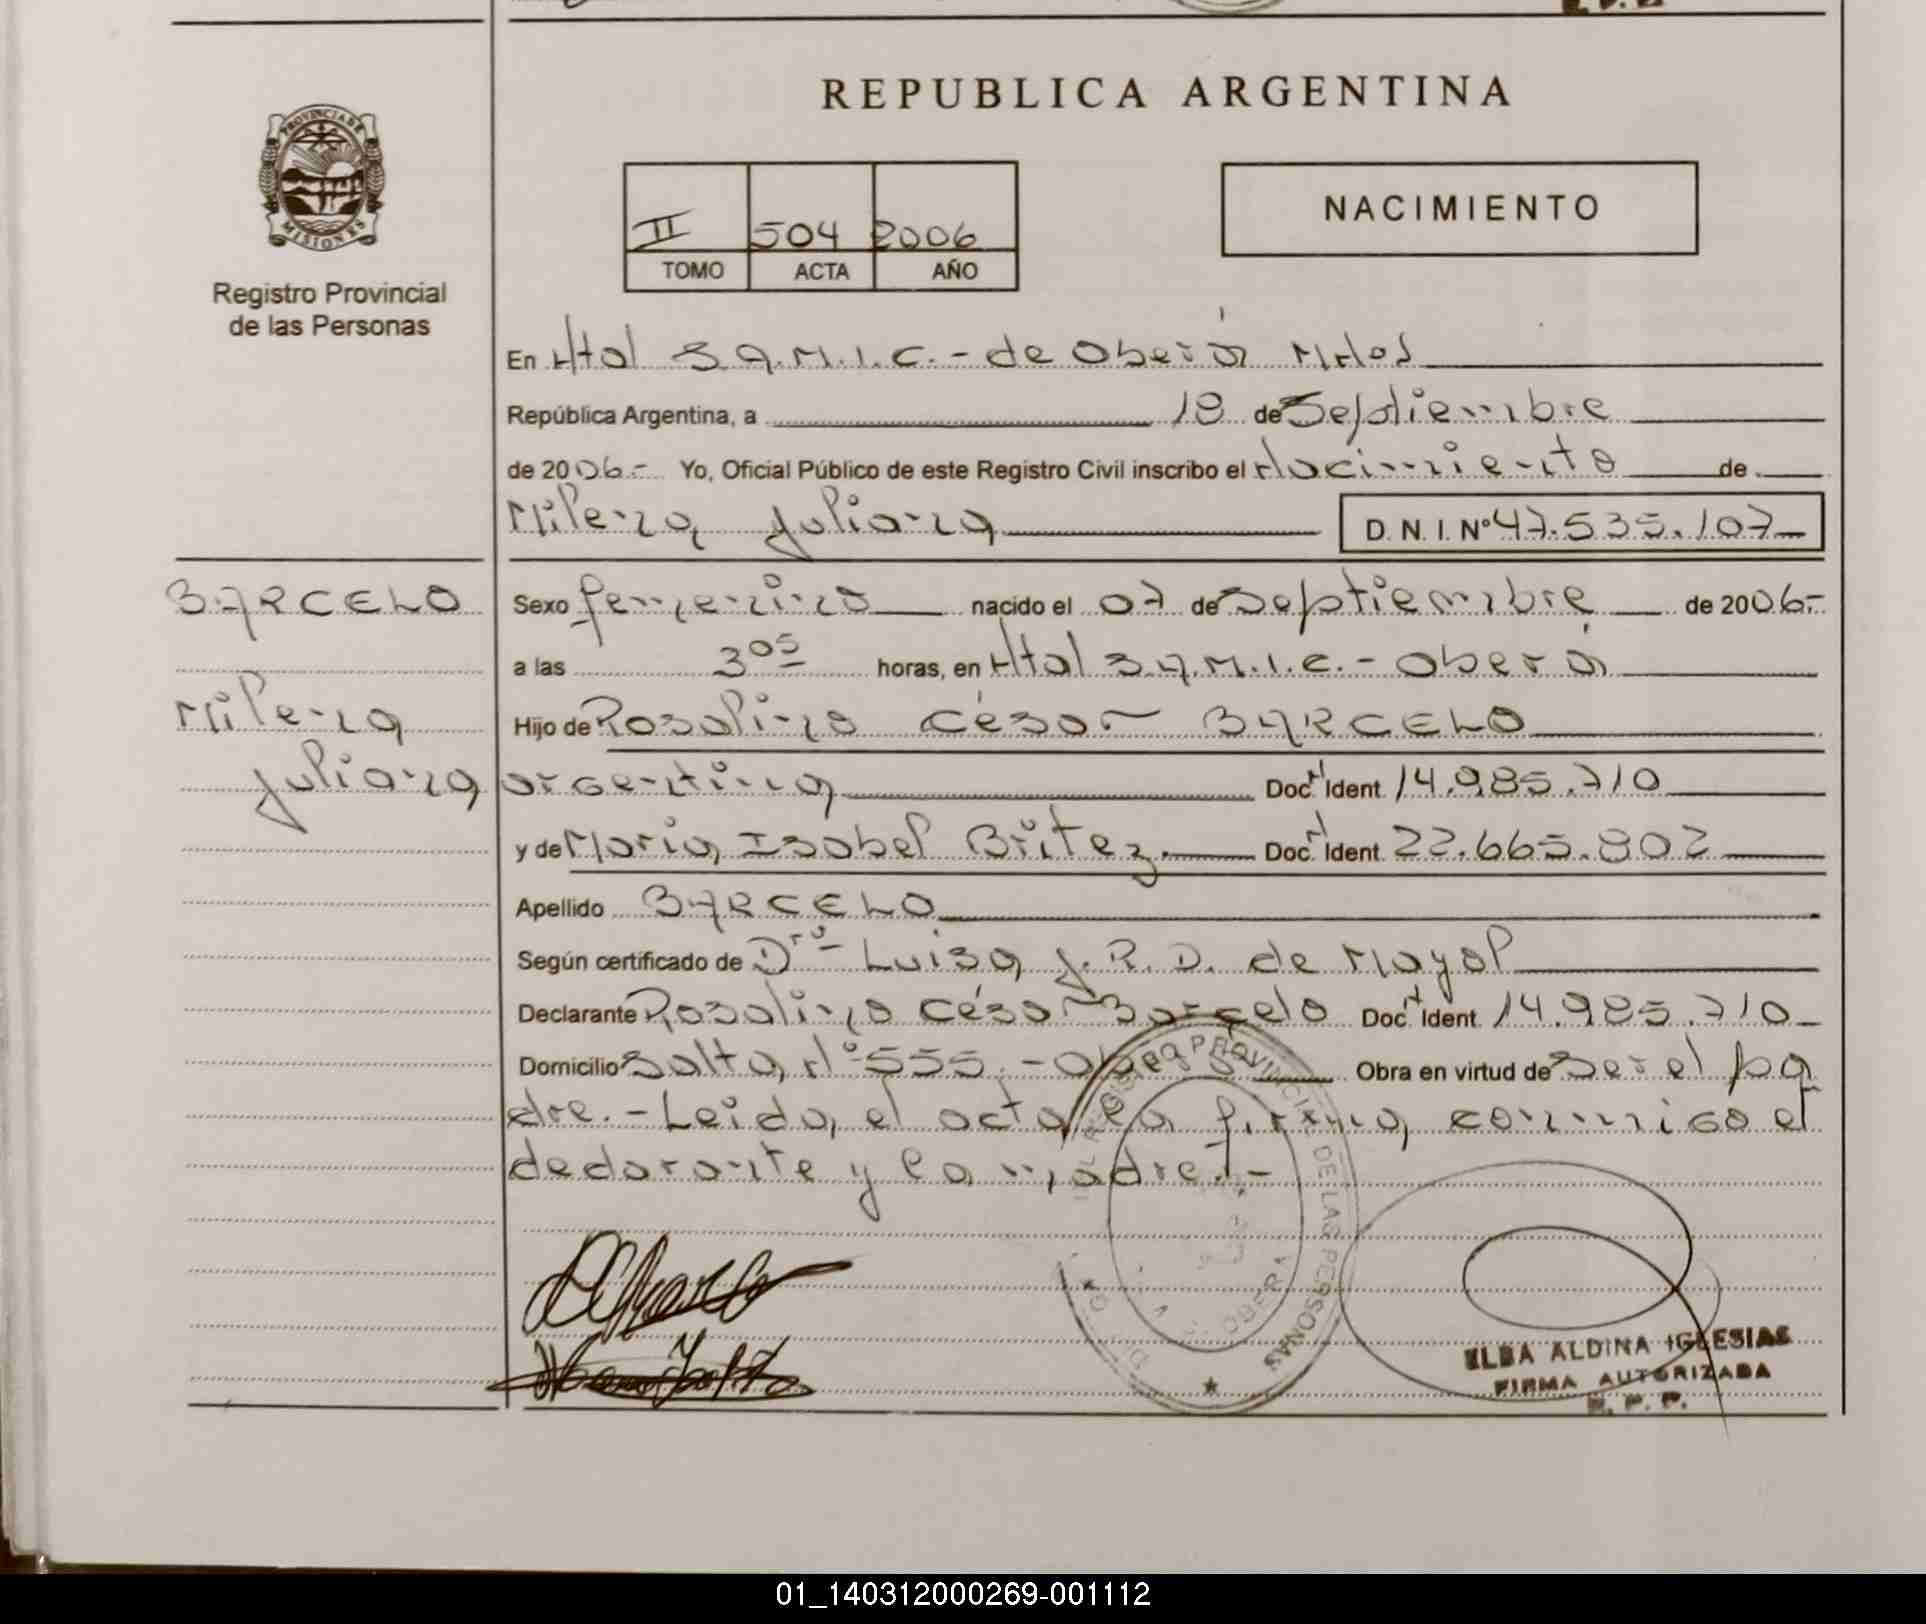 REPUBLICA ARGENTINA
PROVINCIA DE
MISIONES
Registro Provincial
de las Personas
II 504 2006
TOMO ACTA AÑO
NACIMIENTO
En Htal S.A.M.I.C.- de Oberá Mnes
República Argentina, a 18 de Septiembre
de 2006.- Yo, Oficial Público de este Registro Civil inscribo el Nacimiento de
Milena Juliana D. N. I. Nº 47.535.107
BARCELO
Milena
Juliana
Sexo femenino nacido el 07 de Septiembre de 2006.-
a las 3 05 horas, en Htal S.A.M.I.C.- Oberá
Hijo de Rosalino César BARCELO
argentina Doc. Ident. 14.985.710
y de Maria Isabel Britez.- Doc. Ident. 22.665.802
Apellido BARCELO
Según certificado de Dra Luisa J. R. D. de Mayol
Declarante Rosalino César Barcelo Doc. Ident. 14.985.710
Domicilio Salta nº 555.- Oberá Obra en virtud de ser el pa
dre.- Leida el acta la firma conmigo el
declarante y la madre.-
REGISTRO PROVINCIAL DE LAS PERSONAS
OBERA
ELBA ALDINA IGLESIAS
FIRMA AUTORIZADA
R. P. P.
01_140312000269-001112